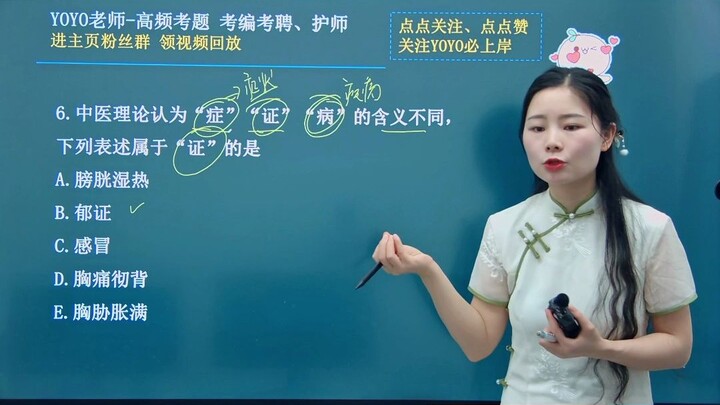 YOYO老师-高频考题 考编考聘、护师
进主页粉丝群 领视频回放
点点关注、点点赞
关注YOYO必上岸
症状
疾病
6.中医理论认为“症”“证”“病”的含义不同，
下列表述属于“证”的是
A.膀胱湿热
B.郁证
C.感冒
D.胸痛彻背
E.胸胁胀满